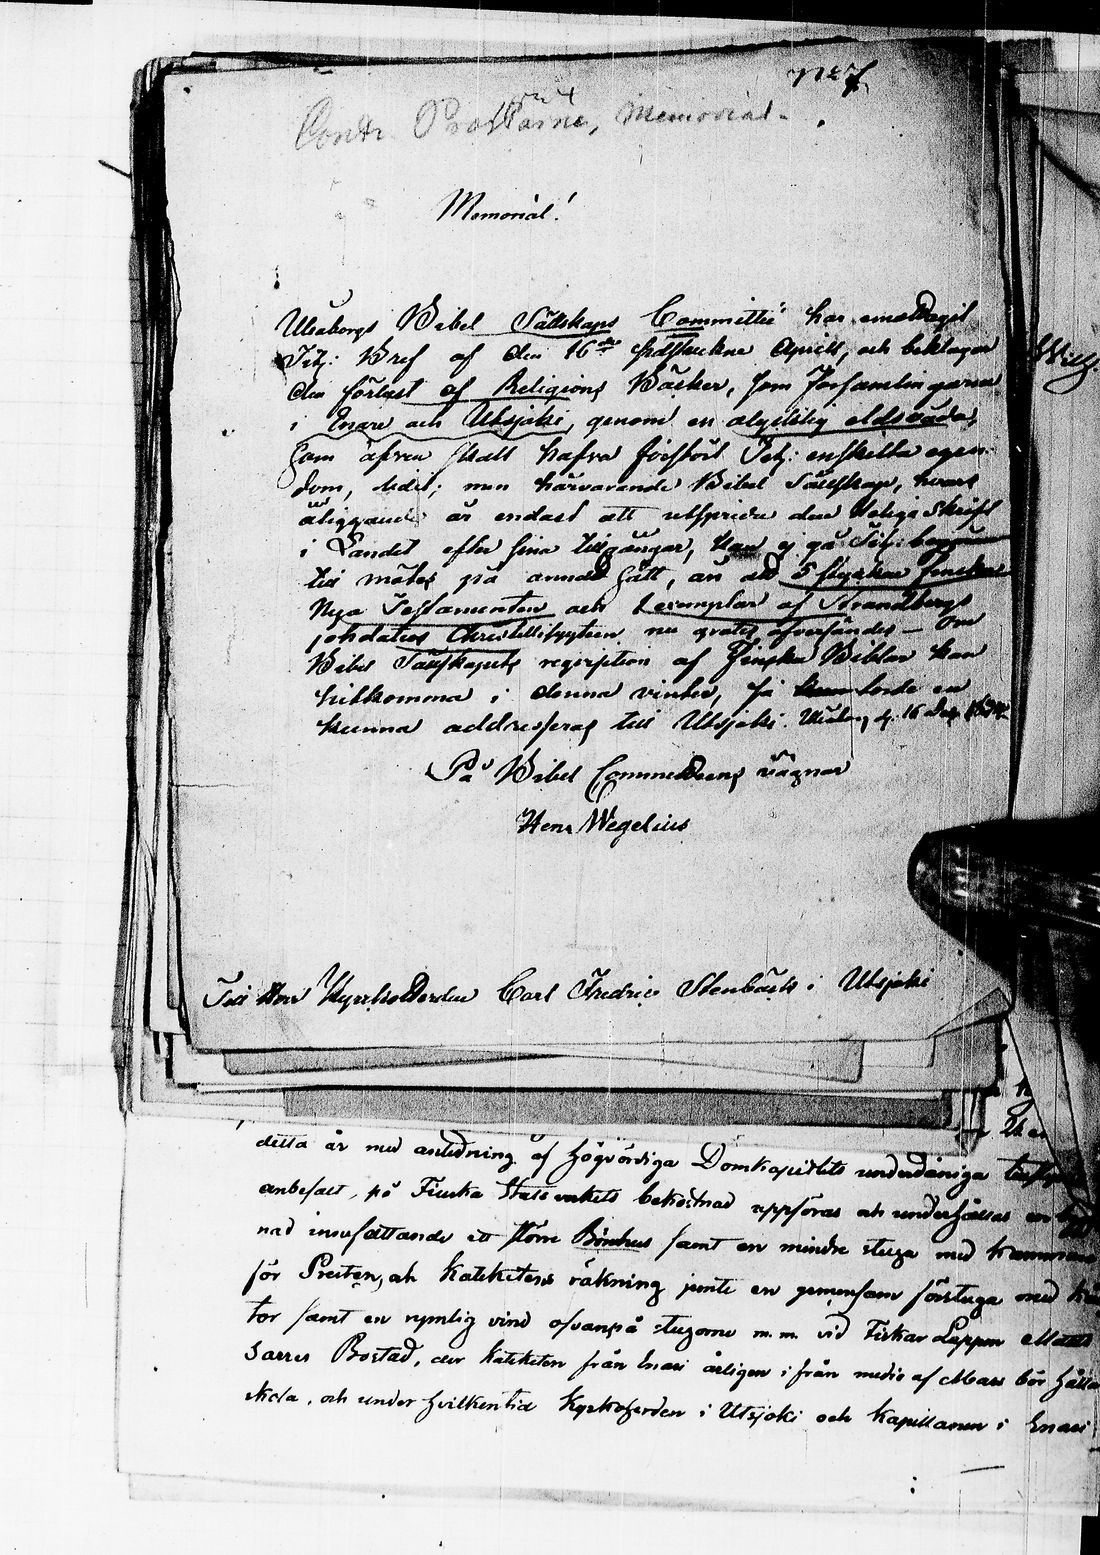 No 7.
Contr. Prosten, Memorial.
Memorial!
Uleåborgs Bibel Sällskaps Committé har emottagit
Titj: Bref af den 16de sistlidne April, och beklagar
den förlust af Religions Böcker, som Församlingarna
i Enare och Utsjoki, genom en olycklig eldsvåda,
som äfven skall hafva förstört Titj: enskilta egen-
dom, lidit; men härvarande Bibel Sällskap, hvars
åliggande är endast att utsprida den Heliga Skrift
i Landet efter sina tillgångar, kan ej gå Titj:
till mötes på annat sätt, än att 5 stycken Finska
Nya Testamenten och 1 exemplar af Strandbergs
johdatus Christillisyyteen nu gratis öfversändes — Om
Bibel Sällskapets reqvisition af Finska Biblar kan
hitkomma i denna vinter, så torde en
kunna addresseras till Utsjoki. Uleåborg d. 16 Dec.
På Bibel Committéens vägnar
Henr Wegelius
Till Herr Kyrkoherden Carl Fredric Stenbäck i Utsjoki
detta år med anledning af Högvördiga Domkapitlets underdåniga
anbefalt, på Finska Statsverkets bekostnad uppföras och underhållas en
nad innefattande ett större Bönehus samt en mindre stuga med kammare
för Presten, och Katekетens räkning jemte en gemensam förstuga med
tor samt en rymlig vind ofvanpå stugorne m. m. vid Fiskar Lappen Matts
Sarres Bostad, der Kateketen från Enari årligen ifrån medio af Mars bör hålla
skola, och under hvilken tid Kyrkoherden i Utsjoki och Kapellanen i Enari